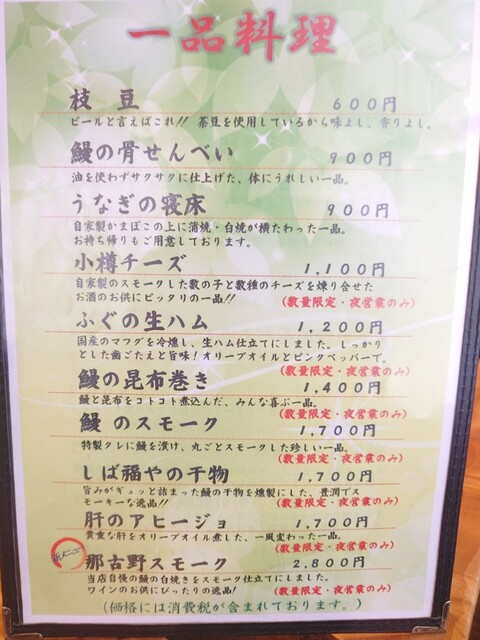 一品料理
枝豆 600円
ビールと言えばこれ!! 茶豆を使用しているから味よし、香りよし。
鰻の骨せんべい 900円
油を使わずサクサクに仕上げた、体にうれしい一品。
うなぎの寝床 900円
自家製かまぼこの上に蒲焼・白焼が横たわった一品。
お持ち帰りもご用意しております。
小樽チーズ 1,100円
自家製のスモークした数の子と数種のチーズを煉り合せた
お酒のお供にピッタリの一品!! (数量限定・夜営業のみ)
ふぐの生ハム 1,200円
国産のマフグを冷燻し、生ハム仕立てにしました。しっかり
とした歯ごたえと旨味!オリーブオイルとピンクペッパーで。
(数量限定・夜営業のみ)
鰻の昆布巻き 1,400円
鰻と昆布をコトコト煮込んだ、みんな喜ぶ一品。
(数量限定・夜営業のみ)
鰻のスモーク 1,700円
特製タレに鰻を漬け、丸ごとスモークした珍しい一品。
(数量限定・夜営業のみ)
しば福やの干物 1,700円
旨みがギュッと詰まった鰻の干物を燻製にした、豊潤でス
モーキーな逸品!! (数量限定・夜営業のみ)
肝のアヒージョ 1,700円
貴重な肝をオリーブオイル煮した、一風変わった一品。
(数量限定・夜営業のみ)
那古野スモーク 2,800円
当店自慢の鰻の白焼きをスモーク仕立てにしました。
ワインのお供にぴったりの逸品! (数量限定・夜営業のみ)
(価格には消費税が含まれております。)